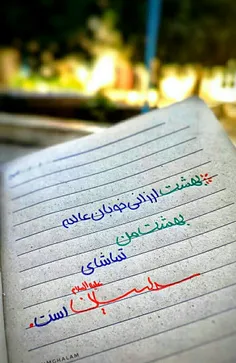 بهشت ارزانی خوبان عالم
بهشت من
تماشای
حسین علیه السلام است.
MGHALAM